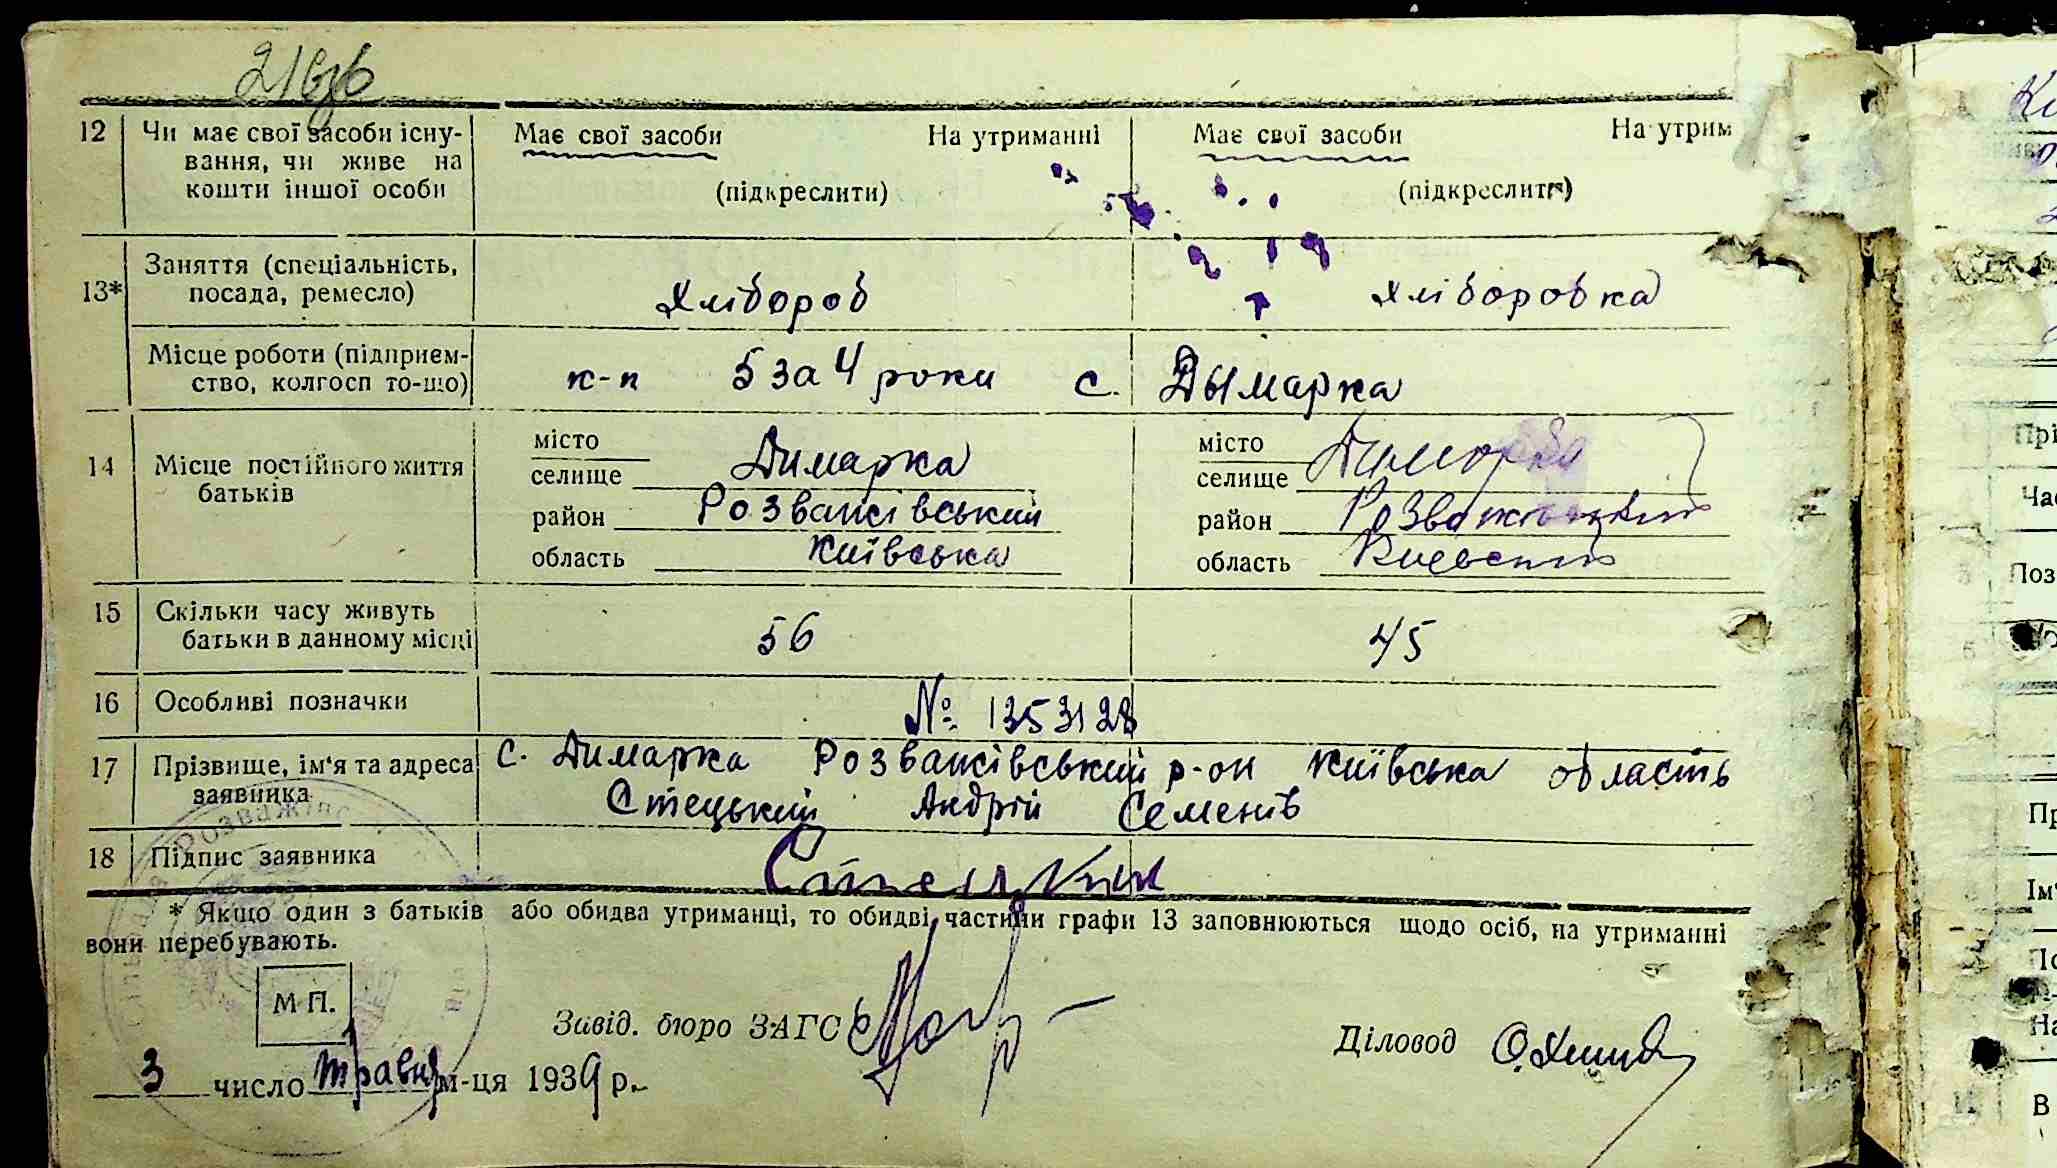 21
12 Чи має свої засоби існу- Має свої засоби На утриманні Має свої засоби На утрим
вання, чи живе на
кошти іншої особи (підкреслити) (підкреслити)
Заняття (спеціальність,
13* посада, ремесло) Хлібороб хліборобка
Місце роботи (підприєм-
ство, колгосп то-що) к-п 5 за 4 роки с. Дымарка
місто місто
14 Місце постійного життя селище Димарка селище
батьків район Розважівський район
область Київська область
15 Скільки часу живуть
батьки в данному місці 56 45
16 Особливі позначки № 1353128
17 Прізвище, ім'я та адреса с. Димарка Розважівський р-он Київська область
заявника Стецький Андрій Семенів
18 Підпис заявника
* Якщо один з батьків або обидва утриманці, то обидві частини графи 13 заповнюються щодо осіб, на утриманні
вони перебувають.
М П.
Завід. бюро ЗАГС Діловод
3 число травня м-ця 1939 р.